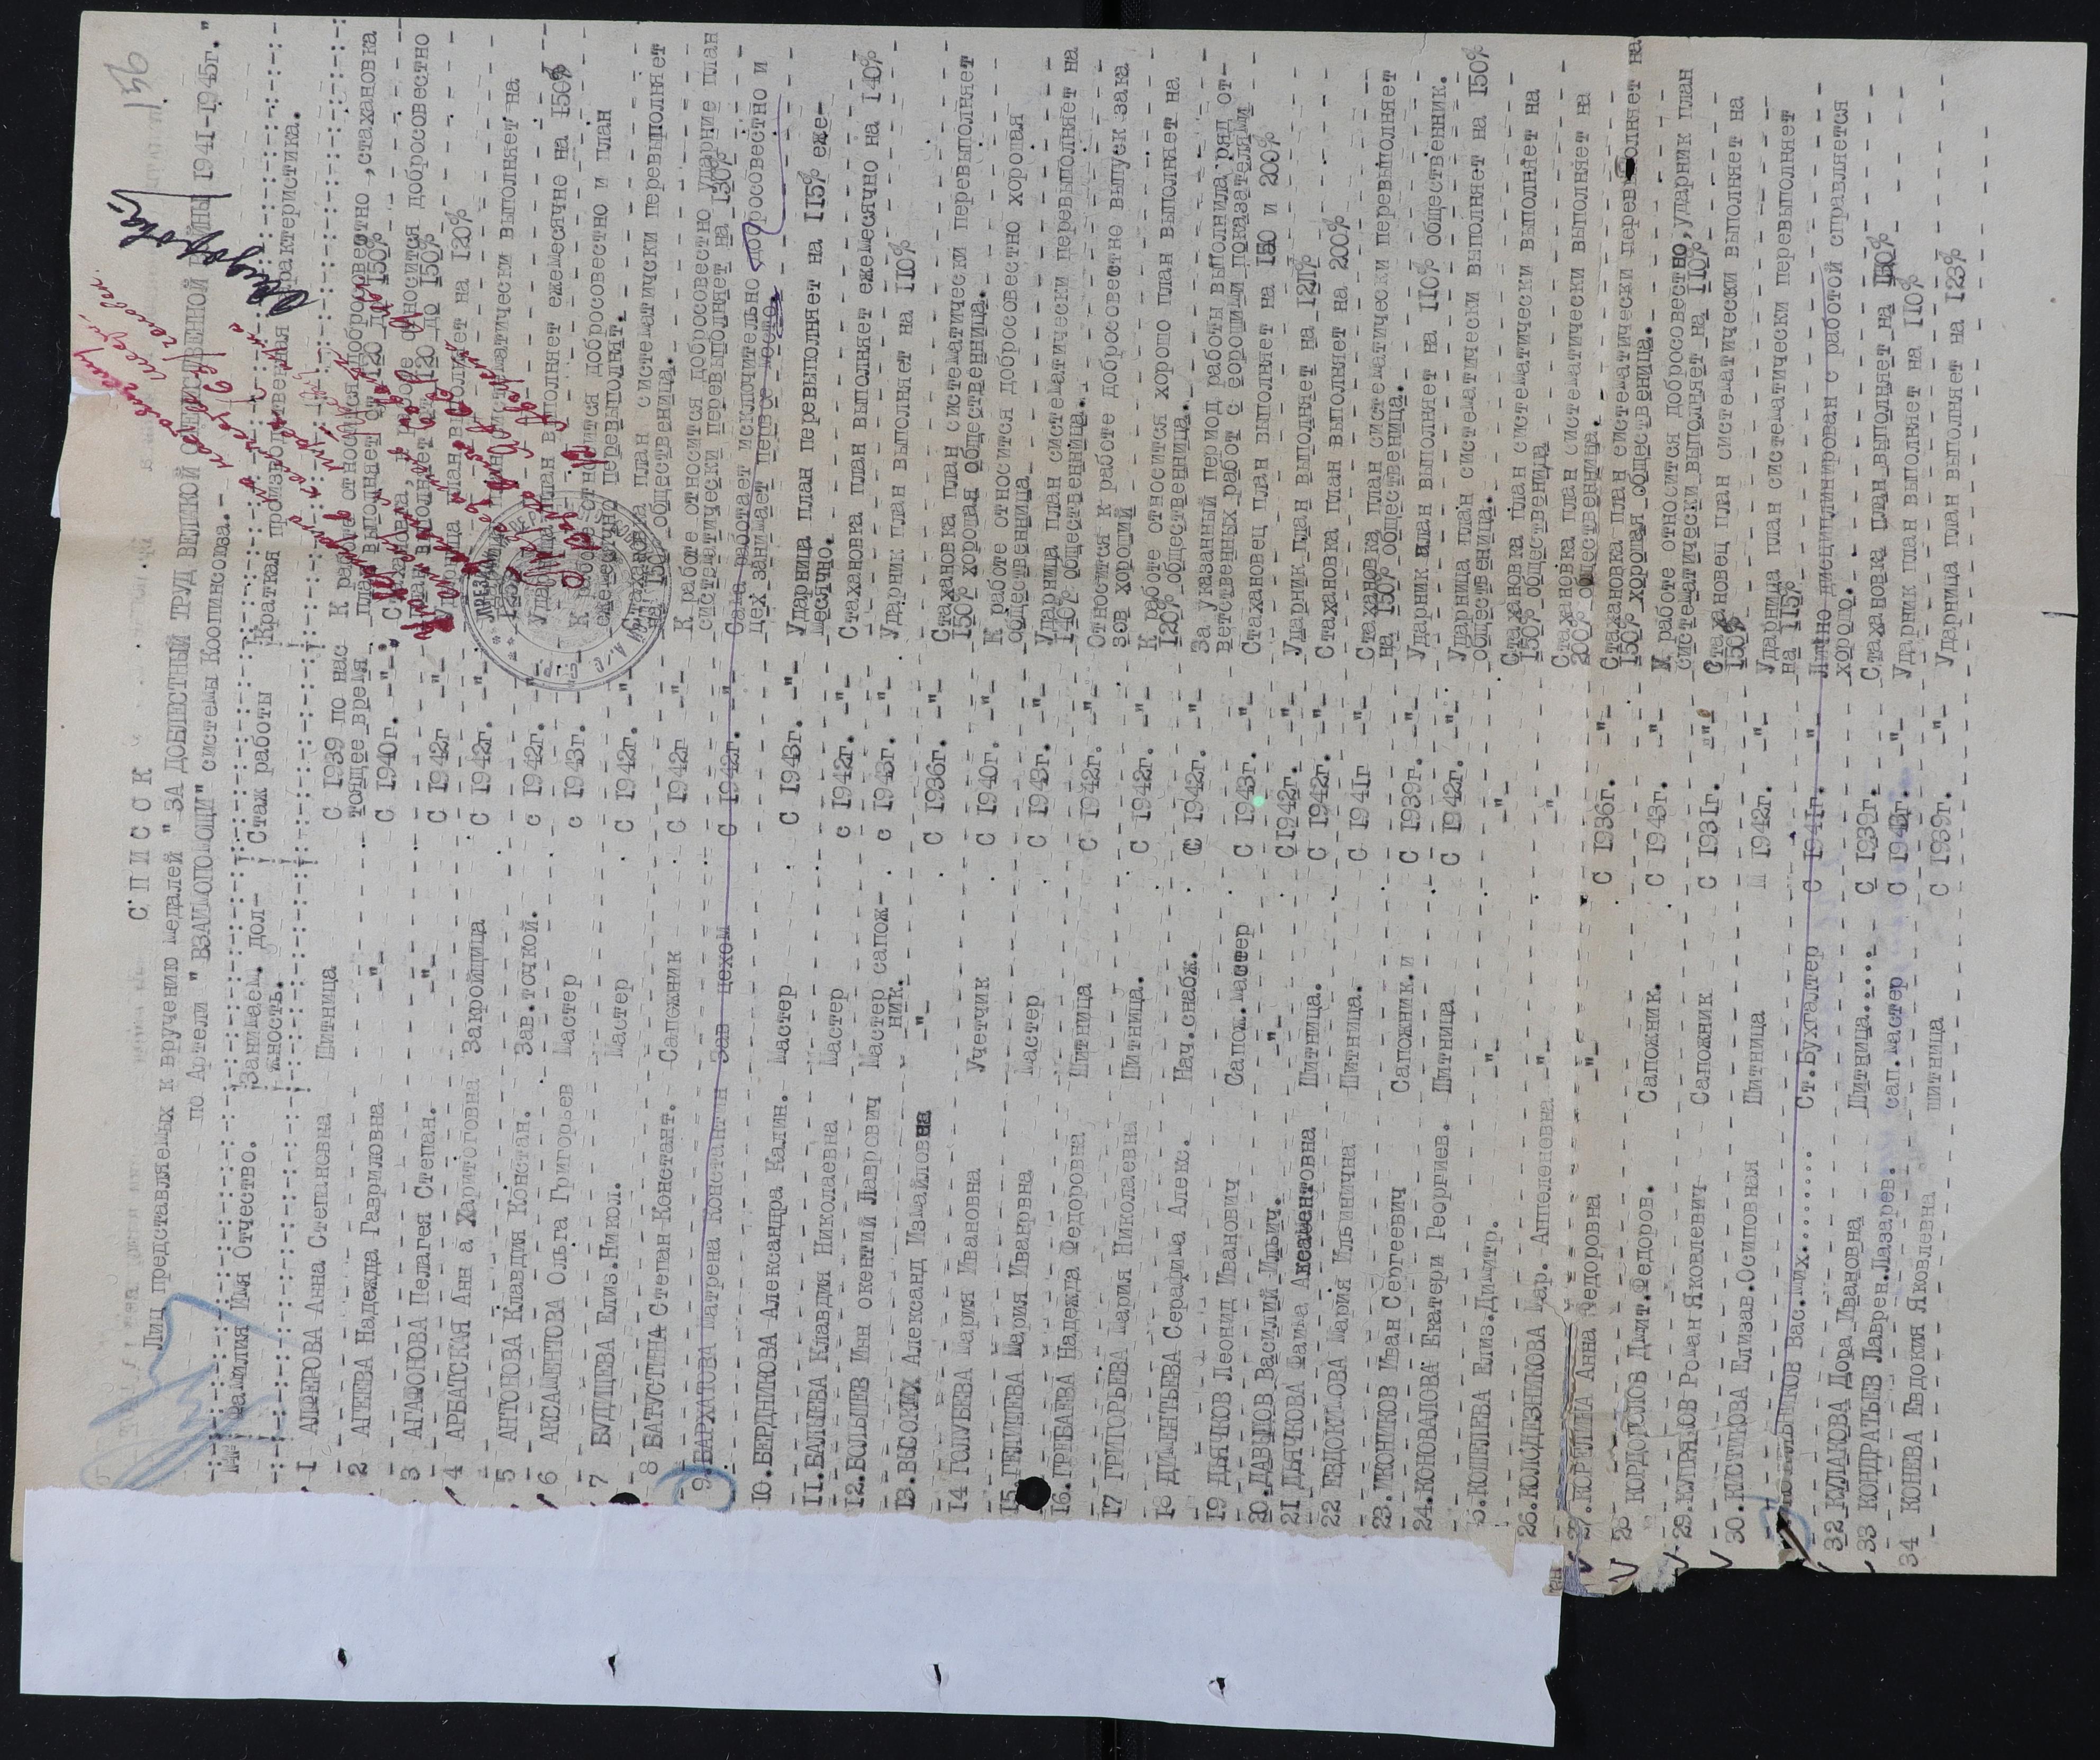 156
С П И С О К
Лиц представляемых к вручению медалей "ЗА ДОБЛЕСТНЫЙ ТРУД ВЕЛИКОЙ ОТЕЧЕСТВЕННОЙ ВОЙНЫ 1941-1945г."
по Артели "ВЗАИМОПОМОЩИ" системы Коопинсоюза.-
№№ Фамилия Имя Отчество. ! Занимаем. дол- ! Стаж работы ! Краткая производственная характеристика.
жность.
1 АЛФЕРОВА Анна Степановна Шитница С 1939 по нас К работе относится добросовестно ,стахановка
тоящее время план выполняет от 120 до 150%
2 АГЕЕВА Надежда Гавриловна -"- С 1940г. -"- Стахановка, к работе относится добросовестно
план выполняет от 120 до 150%
3 АГАФОНОВА Пелагея Степан. -"- С 1942 -"- Ударница план выполняет на 120%
4 АРБАТСКАЯ Анн а Харитоговна Закройщица С 1942г. -"- план систематически выполняет на
5 АНТОНОВА Клавдия Констан. Зав.точкой. с 1942г. -"- Ударница план выполняет ежемесячно на 150%
6 АКСАМЕНТОВА Ольга Григорьев Мастер с 1943г. -"- К работе относится добросовестно и план
ежемесячно перевыполняет.
7 БУДИЩЕВА Елиз.Никол. Мастер С 1942г. -"- Стахановка план систематически перевыполняет
на 150% общественница.
8 ВАТУСТИНА Степан Констант. Сапожник С 1942 -"- К работе относится добросовестно ударние план
систематически перевыполняет на 130%
9.БАРХАТОВА Матрена Константин Зав цехом С 1942г. -"- Сама работает исключительно добросовестно и
цех занимает первое место.
10.БЕРДНИКОВА Александра Калин. Мастер С 1943г. -"- Ударница план перевыполняет на 115% еже-
месячно.
11.ВАЛЬЕВА Клавдия Николаевна Мастер с 1942г. -"- Стахановка план выполняет ежемесячно на 140%
12.БОЛЬШЕВ Инн окентий Лаврович Мастер сапож- с 1943г. -"- Ударник план выполняет на 110%
ник.
13.ВЫСОКИХ Александ Измайловна -"- С 1936г. -"- Стахановка план систематически перевыполняет
150% хорошая общественница.
14 ГОЛУБЕВА Мария Ивановна Учетчик С 1940г. -"- К работе относится добросовестно хорошая
общественница
15.ГЕЛИЦЕВА Мария Ивановна Мастер С 1943г. -"- Ударница план систематически перевыполняет на
140% общественница.
16.ГРИБАЕВА Надежда Федоровна Шитница С 1942г. -"- Относится к работе добросовестно выпуск зака
зов хороший
17 ГРИГОРЬЕВА Мария Николаевна Шитница. С 1942г. -"- К работе относится хорошо план выполняет на
120% общественница.
18 ДИМЕНТЬЕВА Серафима Алекс. Нач.снабж. С 1942г. -"- За указанный период работы выполнила ряд от-
ветственных работ с хорошими показателями
19 ДЬЯЧКОВ Леонид Иванович Сапож.Мастер С 1943г. -"- Стахановец план выполняет на 150 и 200%
20.ДАВЫДОВ Василий Ильич. -"- С 1942г. -"- Ударник план выполняет на 121%
21 ДЬЯЧКОВА Фаина Аксаментовна Шитница. С 1942г. -"- Стахановка план выполняет на 200%
22 ЕВДОКИМОВА Мария Ильинична Шитница. С 1941г -"- Стахановка план систематически перевыполняет
на 150% общественница.
23.ИКОНИКОВ Иван Сергеевич Сапожник. С 1939г. -"- Ударник план выполняет на 110% общественник.
24.КОНОВАЛОВА Екатери Георгиев. Шитница С 1942г. -"- Ударница план систематически выполняет на 150%
общественница.
5.КОШЕЛЕВА Елиз.Димитр. -"- -"- Стахановка план систематически выполняет на
150% общественница
26.КОЛОДЕЗНИКОВА Мар. Апполеновна -"- -"- Стахановка план систематически выполняет на
200% общественница.
27.КОРЕЛИНА Анна Федоровна -"- С 1936г. -"- Стахановка план систематически перевыполняет на
150% хорошая общественница.
28 КОРДОПОЛОВ Дмит.Федоров. Сапожник. С 1943г. -"- К работе относится добросовестно,ударник план
систематически выполняет на 110%
29.КУПРЯКОВ Роман Яковлевич Сапожник С 1931г. -"- Стахановец план систематически выполняет на
150%
30.КЮТЮКОВА Елизав.Осиповная Шитница 1942г. -"- Ударница план систематически перевыполняет
на 115%
Вас.Мих......... Ст.Бухгалтер С 1941г. -"- Лично дисциплинирован с работой справляется
хорошо.
32 КУЛАКОВА Дора Ивановна Шитница..... С 1939г. -"- Стахановка план выполняет на 150%
33 КОНДРАТЬЕВ Лаврен.Лазарев. сап.мастер С 1943г. -"- Ударник план выполняет на 110%
34 КОНЕВА Евдокия Яковлевна шитница С 1939г. -"- Ударница план выполняет на 123%